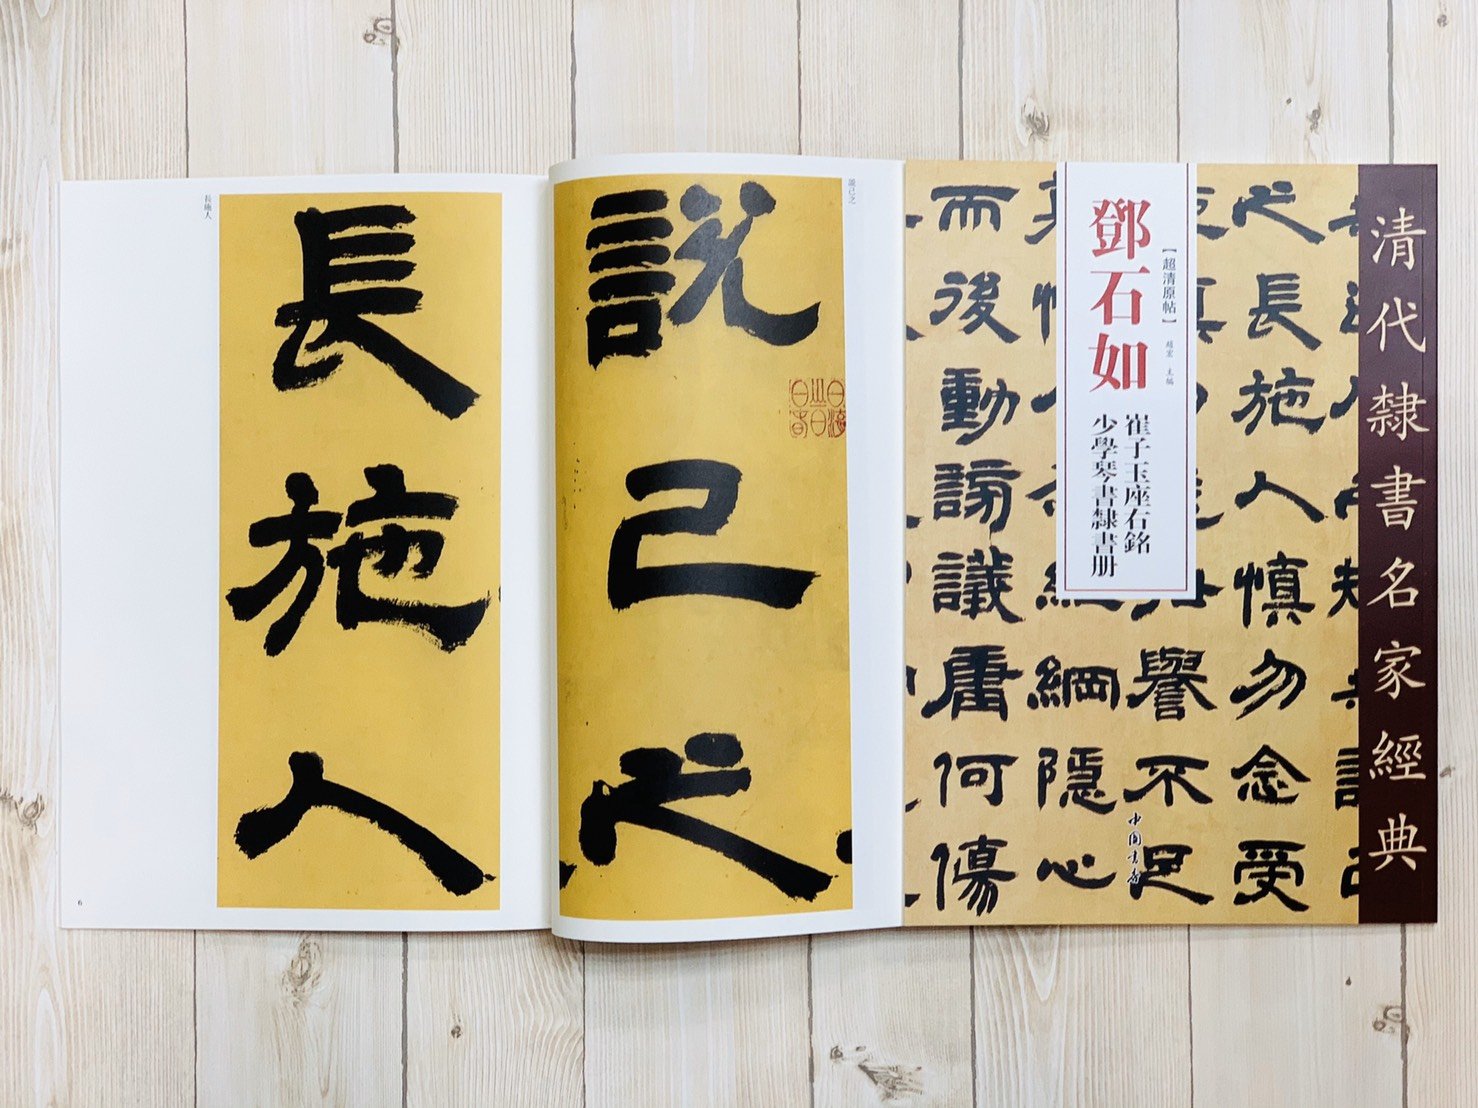 清代隸書名家經典
【超清原帖】
趙宏 主編
鄧石如
崔子玉座右銘
少學琴書隸書册
中國書店
之長施人慎勿念受
譽不足
綱隱心
而後動謗議庸何傷
說己之
說己之
長施人
長施人
6